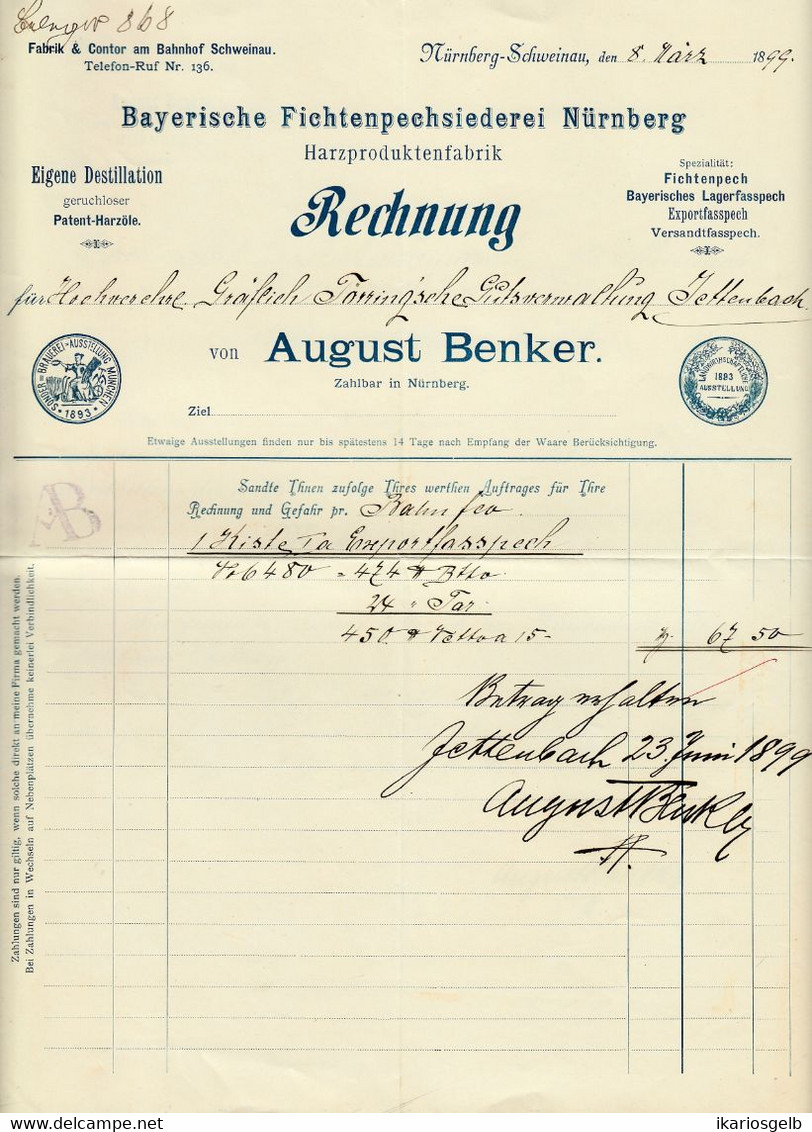 868
Fabrik & Contor am Bahnhof Schweinau.
Telefon-Ruf Nr. 136.
Nürnberg-Schweinau, den 8. März 1899.
Bayerische Fichtenpechsiederei Nürnberg
Harzproduktenfabrik
Eigene Destillation
geruchloser
Patent-Harzöle.
Rechnung
Spezialität:
Fichtenpech
Bayerisches Lagerfasspech
Exportfasspech
Versandtfasspech.
für Hochverehrl. Gräflich Törring'sche Gutsverwaltung Jettenbach
BRAUEREI-AUSSTELLUNG MÜNCHEN
1893
von August Benker.
Zahlbar in Nürnberg.
LANDWIRTHSCHAFTLICHE
1893
AUSSTELLUNG
Ziel
Etwaige Ausstellungen finden nur bis spätestens 14 Tage nach Empfang der Waare Berücksichtigung.
AB
Sandte Ihnen zufolge Ihres werthen Auftrages für Ihre
Rechnung und Gefahr pr. Bahn fco
1 Kiste Ia Exportfasspech
No 6480 = 474 ℔ Btto
24 " Tar.
450 ℔ Netto a 15- M. 67 50
Betrag erhalten
Jettenbach 23. Juni 1899
August Benker
Zahlungen sind nur giltig, wenn solche direkt an meine Firma gemacht werden.
Bei Zahlungen in Wechseln auf Nebenplätzen übernehme keinerlei Verbindlichkeit.
delcampe.net
ikariosgelb